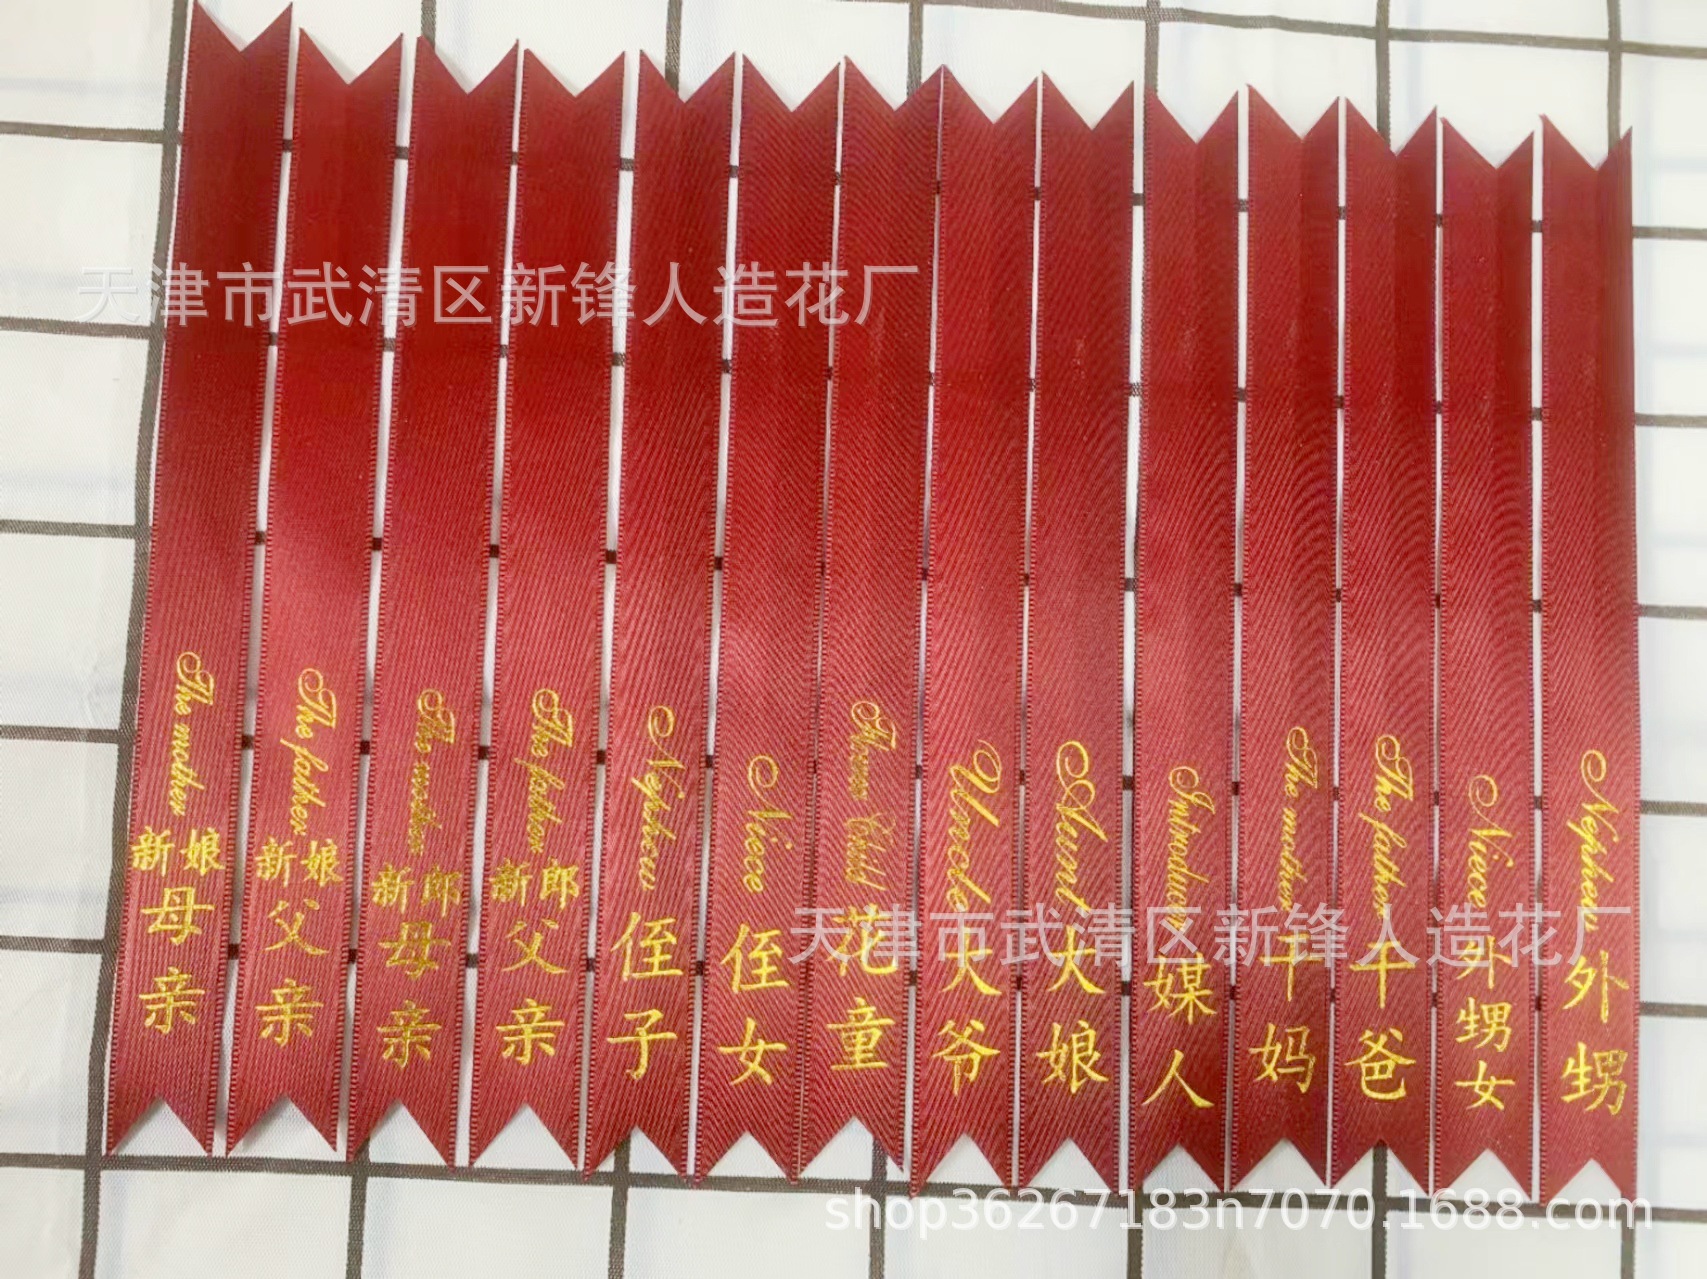 天津市武清区新锋人造花厂
The mother
新娘
母亲
The father
新娘
父亲
The mother
新郎
母亲
The father
新郎
父亲
Nephew
侄子
Niece
侄女
Flower Child
花童
Uncle
大爷
Aunt
大娘
Introducer
媒人
The mother
干妈
The father
干爸
Niece
外甥女
Nephew
外甥
天津市武清区新锋人造花厂
shop36267183n7070.1688.com